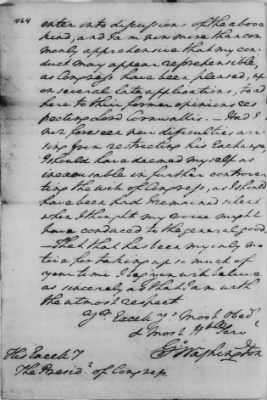 464
enter into discussions of the above
kind, and I am now more than com
monly apprehensive that my con
duct may appear reprehensible,
as Congress have been pleased, up
on several late applications, to ad
here to their former opinions res
pecting Lord Cornwallis. — Had I
not foreseen new difficulties ari
sing from restricting his Exchange,
I should have deemed myself as
inexcusable in further controver
ting the wish of Congress, as I should
have been had I remained silent
when I thought my voice might
have conduced to the general good
— That that has been my only mo
tive for taking up so much of
your time I beg you will believe
as sincerely as that I am with
the utmost respect
Yr Excelly's Most Obedt
& Most Hble Servt
Go Washington
His Excelly
The Presidt of Congress